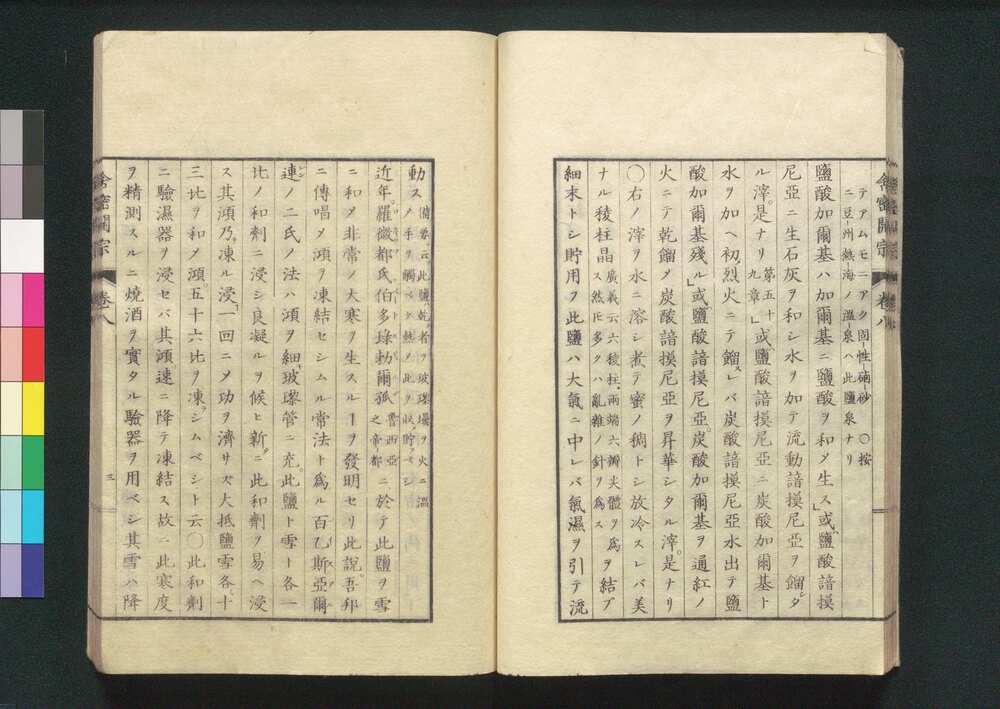 テアムモニアク固性硇砂 〇按
ニ豆州熱海ノ温泉ハ此鹽泉ナリ
鹽酸加爾基ハ加爾基ニ鹽酸ヲ和メ生ス」或鹽酸諳摸
尼亞ニ生石灰ヲ和シ水ヲ加テ流動諳摸尼亞ヲ餾タ
ル滓是ナリ第五十九章」或鹽酸諳摸尼亞ニ炭酸加爾基ト
水ヲ加ヘ初烈火ニテ餾スレバ炭酸諳摸尼亞水出テ鹽
酸加爾基殘ル」或鹽酸諳摸尼亞炭酸加爾基ヲ通紅ノ
火ニテ乾餾メ炭酸諳摸尼亞ヲ昇華シタル滓是ナリ
〇右ノ滓ヲ水ニ溶シ煮テ蜜ノ稠トシ放冷スレバ美
ナル稜柱晶廣義云六稜柱兩端六瓣尖體ヲ爲ス然𪜈多クハ亂雜ノ針ヲ爲スヲ結ブ
細末トシ貯用ヲ此鹽ハ大氣ニ中レバ氣濕ヲ引テ流
舎密開宗 卷八
動ス
近年羅微都氏伯多琭勅爾孤魯西亞之帝都ニ於テ此鹽ヲ雪
ニ和メ非常ノ大寒ヲ生スルヿヲ發明セリ此說吾邦
ニ傳唱メ澒ヲ凍結セシムル常法ト爲ル百乙斯亞爾
連ノ二氏ノ法ハ澒ヲ細玻璨管ニ充此鹽ト雪ト各一
比ノ和劑ニ浸シ良凝ルヲ候ヒ新ニ此和劑ヲ易ヘ浸
ス其澒乃凍ル浸一回ニメ功ヲ濟サズ大抵鹽雪各十
三比ヲ和メ澒五十六比ヲ凍シムベシト云〇此和劑
ニ驗濕器ヲ浸セバ其澒速ニ降テ凍結ス故ニ此寒度
ヲ精測スルニ燒酒ヲ實タル驗器ヲ用ベシ其雪ハ降
舎密開宗 卷八 三